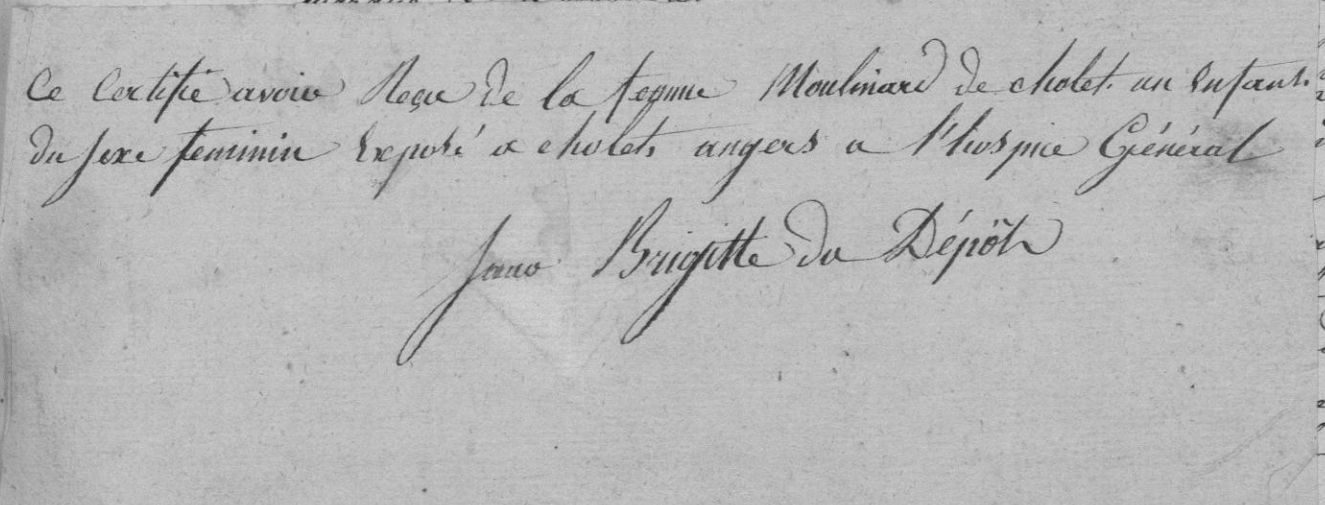 Ce Certifie avoir Reçu de la femme Moulinard de cholet. un Enfant.
du sexe feminin Exposé a cholet, angers a l'hospice Général
Brigitte du Dépôt